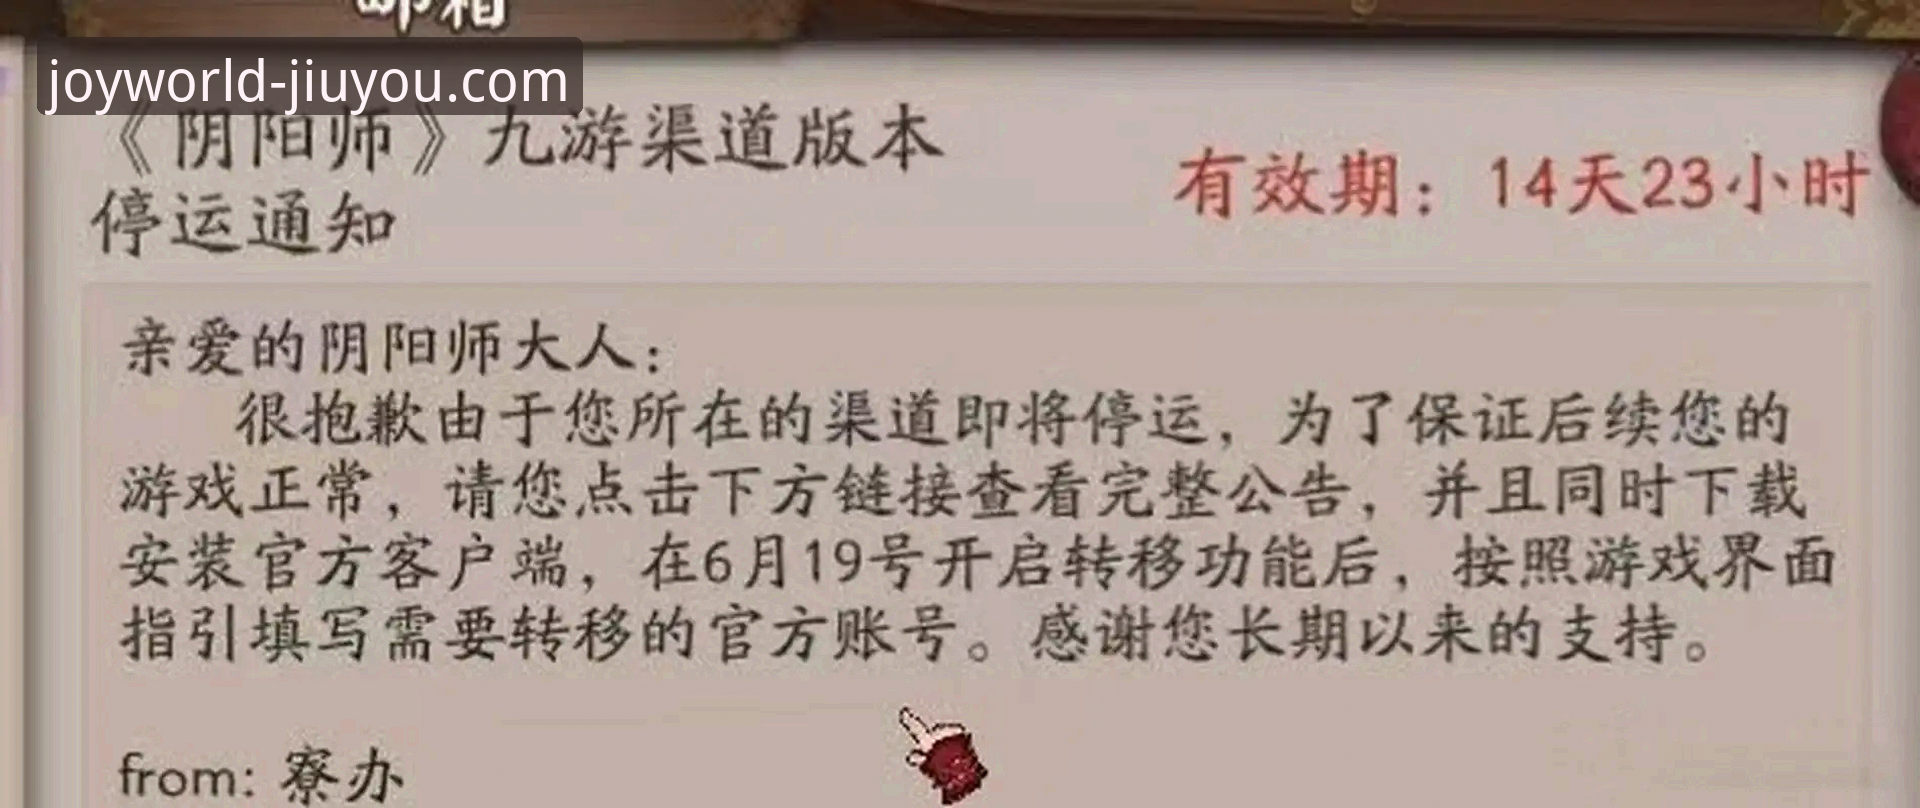 邮箱
joyworld-jiuyou.com
《阴阳师》九游渠道版本
停运通知
有效期：14天23小时
亲爱的阴阳师大人：
很抱歉由于您所在的渠道即将停运，为了保证后续您的
游戏正常，请您点击下方链接查看完整公告，并且同时下载
安装官方客户端，在6月19号开启转移功能后，按照游戏界面
指引填写需要转移的官方账号。感谢您长期以来的支持。
from: 寮办